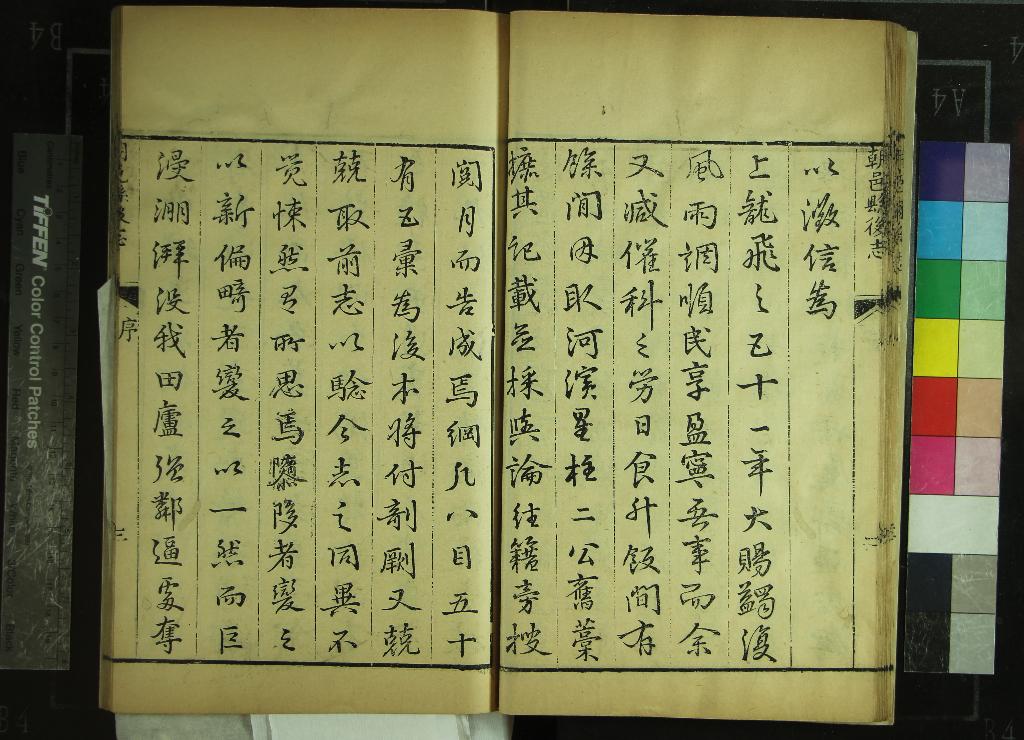 朝邑縣後志
以徵信焉
上龍飛之五十一年大賜蠲復
風雨調順民享盈寧無事而余
又減催科之勞日食升飯間有
餘閒毋取河濱星柱二公舊藁
摭其記載並採輿論往籍旁搜
閱月而告成焉綱凡八目五十
有五彙為後本將付剞劂又兢
兢取前志以騐今志之同異不
覺悚然有所思焉隳隊者變之
以新偏畸者變之以一然而巨
浸漰湃沒我田廬强鄰逼處奪
序
TIFFEN Color Control Patches
Blue
Cyan
Green
Yellow
Red
Black
B4
A4